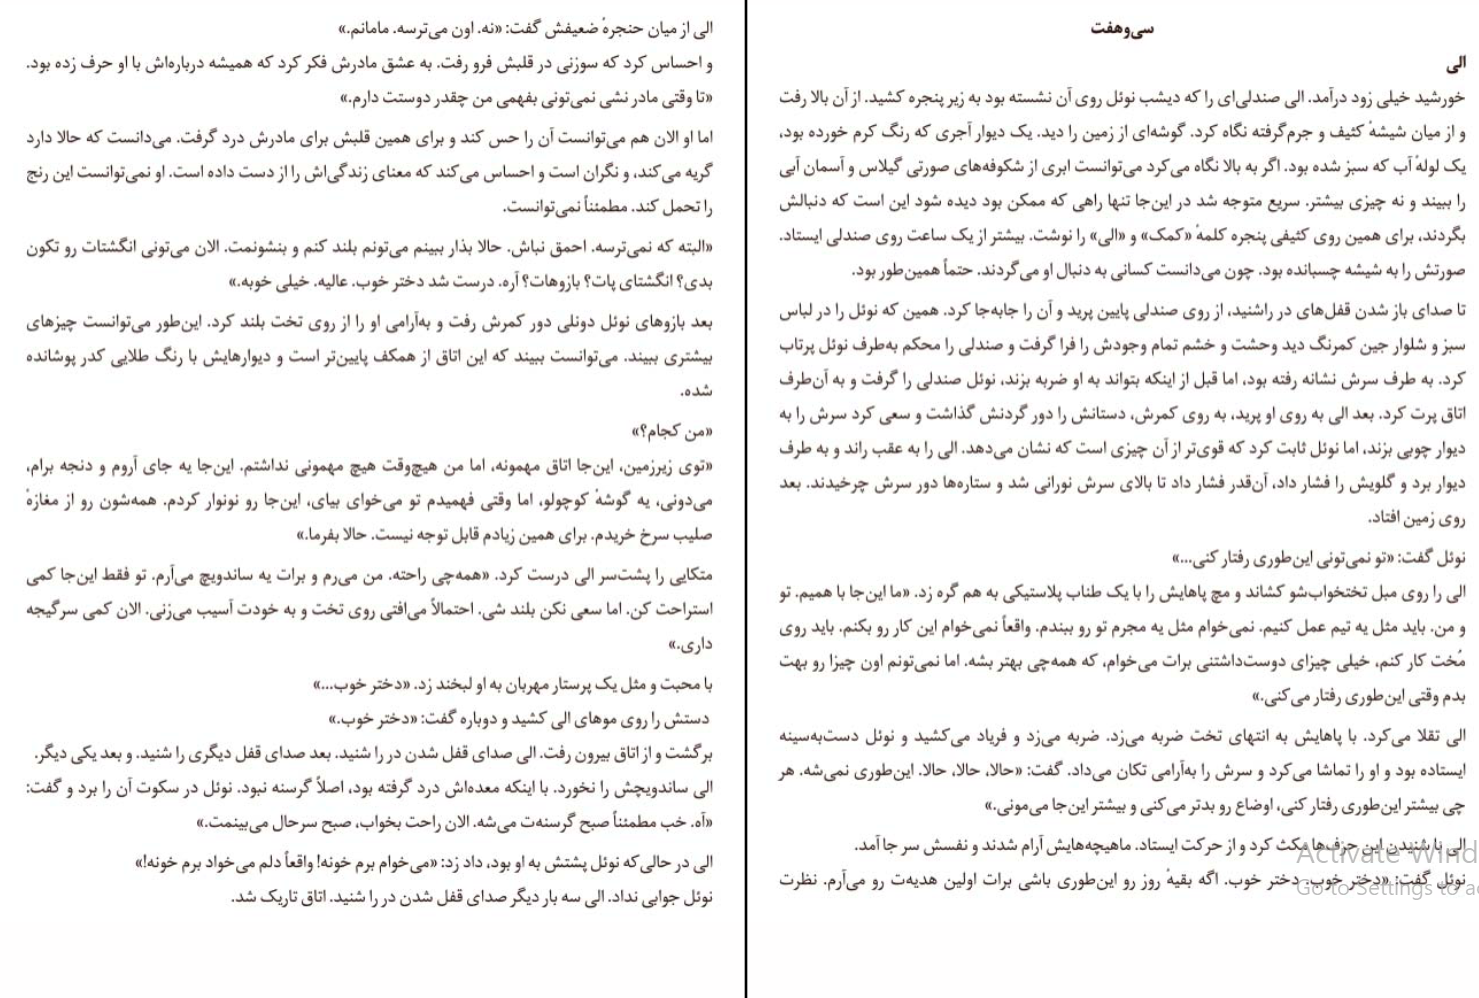 سی‌وهفت
الی
خورشید خیلی زود درآمد. الی صندلی‌ای را که دیشب نوئل روی آن نشسته بود به زیر پنجره کشید. از آن بالا رفت
و از میان شیشهٔ کثیف و جرم‌گرفته نگاه کرد. گوشه‌ای از زمین را دید. یک دیوار آجری که رنگ کرم خورده بود،
یک لولهٔ آب که سبز شده بود. اگر به بالا نگاه می‌کرد می‌توانست ابری از شکوفه‌های صورتی گیلاس و آسمان آبی
را ببیند و نه چیزی بیشتر. سریع متوجه شد در این‌جا تنها راهی که ممکن بود دیده شود این است که دنبالش
بگردند، برای همین روی کثیفی پنجره کلمهٔ «کمک» و «الی» را نوشت. بیشتر از یک ساعت روی صندلی ایستاد.
صورتش را به شیشه چسبانده بود. چون می‌دانست کسانی به دنبال او می‌گردند. حتماً همین‌طور بود.
تا صدای باز شدن قفل‌های در راشنید، از روی صندلی پایین پرید و آن را جابه‌جا کرد. همین که نوئل را در لباس
سبز و شلوار جین کمرنگ دید وحشت و خشم تمام وجودش را فرا گرفت و صندلی را محکم به‌طرف نوئل پرتاب
کرد. به طرف سرش نشانه رفته بود، اما قبل از اینکه بتواند به او ضربه بزند، نوئل صندلی را گرفت و به آن‌طرف
اتاق پرت کرد. بعد الی به روی او پرید، به روی کمرش، دستانش را دور گردنش گذاشت و سعی کرد سرش را به
دیوار چوبی بزند، اما نوئل ثابت کرد که قوی‌تر از آن چیزی است که نشان می‌دهد. الی را به عقب راند و به طرف
دیوار برد و گلویش را فشار داد، آن‌قدر فشار داد تا بالای سرش نورانی شد و ستاره‌ها دور سرش چرخیدند. بعد
روی زمین افتاد.
نوئل گفت: «تو نمی‌تونی این‌طوری رفتار کنی...»
الی را روی مبل تختخواب‌شو کشاند و مچ پاهایش را با یک طناب پلاستیکی به هم گره زد. «ما این‌جا با همیم. تو
و من. باید مثل یه تیم عمل کنیم. نمی‌خوام مثل یه مجرم تو رو ببندم. واقعاً نمی‌خوام این کار رو بکنم. باید روی
مُخت کار کنم، خیلی چیزای دوست‌داشتنی برات می‌خوام، که همه‌چی بهتر بشه. اما نمی‌تونم اون چیزا رو بهت
بدم وقتی این‌طوری رفتار می‌کنی.»
الی تقلا می‌کرد. با پاهایش به انتهای تخت ضربه می‌زد. ضربه می‌زد و فریاد می‌کشید و نوئل دست‌به‌سینه
ایستاده بود و او را تماشا می‌کرد و سرش را به‌آرامی تکان می‌داد. گفت: «حالا، حالا، حالا. این‌طوری نمی‌شه. هر
چی بیشتر این‌طوری رفتار کنی، اوضاع رو بدتر می‌کنی و بیشتر این‌جا می‌مونی.»
الی با شنیدن این حرف‌ها مکث کرد و از حرکت ایستاد. ماهیچه‌هایش آرام شدند و نفسش سر جا آمد.
نوئل گفت: «دختر خوب. دختر خوب. اگه بقیهٔ روز رو این‌طوری باشی برات اولین هدیه‌ت رو می‌آرم. نظرت
الی از میان حنجرهٔ ضعیفش گفت: «نه. اون می‌ترسه. مامانم.»
و احساس کرد که سوزنی در قلبش فرو رفت. به عشق مادرش فکر کرد که همیشه درباره‌اش با او حرف زده بود.
«تا وقتی مادر نشی نمی‌تونی بفهمی من چقدر دوستت دارم.»
اما او الان هم می‌توانست آن را حس کند و برای همین قلبش برای مادرش درد گرفت. می‌دانست که حالا دارد
گریه می‌کند، و نگران است و احساس می‌کند که معنای زندگی‌اش را از دست داده است. او نمی‌توانست این رنج
را تحمل کند. مطمئناً نمی‌توانست.
«البته که نمی‌ترسه. احمق نباش. حالا بذار ببینم می‌تونم بلند کنم و بنشونمت. الان می‌تونی انگشتات رو تکون
بدی؟ انگشتای پات؟ بازوهات؟ آره. درست شد دختر خوب. عالیه. خیلی خوبه.»
بعد بازوهای نوئل دونلی دور کمرش رفت و به‌آرامی او را از روی تخت بلند کرد. این‌طور می‌توانست چیزهای
بیشتری ببیند. می‌توانست ببیند که این اتاق از همکف پایین‌تر است و دیوارهایش با رنگ طلایی کدر پوشانده
شده.
«من کجام؟»
«توی زیرزمین، این‌جا اتاق مهمونه، اما من هیچ‌وقت هیچ مهمونی نداشتم. این‌جا یه جای آروم و دنجه برام،
می‌دونی، یه گوشهٔ کوچولو، اما وقتی فهمیدم تو می‌خوای بیای، این‌جا رو نونوار کردم. همه‌شون رو از مغازهٔ
صلیب سرخ خریدم. برای همین زیادم قابل توجه نیست. حالا بفرما.»
متکایی را پشت‌سر الی درست کرد. «همه‌چی راحته. من می‌رم و برات یه ساندویچ می‌آرم. تو فقط این‌جا کمی
استراحت کن. اما سعی نکن بلند شی. احتمالاً می‌افتی روی تخت و به خودت آسیب می‌زنی. الان کمی سرگیجه
داری.»
با محبت و مثل یک پرستار مهربان به او لبخند زد. «دختر خوب...»
دستش را روی موهای الی کشید و دوباره گفت: «دختر خوب.»
برگشت و از اتاق بیرون رفت. الی صدای قفل شدن در را شنید. بعد صدای قفل دیگری را شنید. و بعد یکی دیگر.
الی ساندویچش را نخورد. با اینکه معده‌اش درد گرفته بود، اصلاً گرسنه نبود. نوئل در سکوت آن را برد و گفت:
«آه. خب مطمئناً صبح گرسنه‌ت می‌شه. الان راحت بخواب، صبح سرحال می‌بینمت.»
الی در حالی‌که نوئل پشتش به او بود، داد زد: «می‌خوام برم خونه! واقعاً دلم می‌خواد برم خونه!»
نوئل جوابی نداد. الی سه بار دیگر صدای قفل شدن در را شنید. اتاق تاریک شد.
Activate Wind
Go to Settings to a